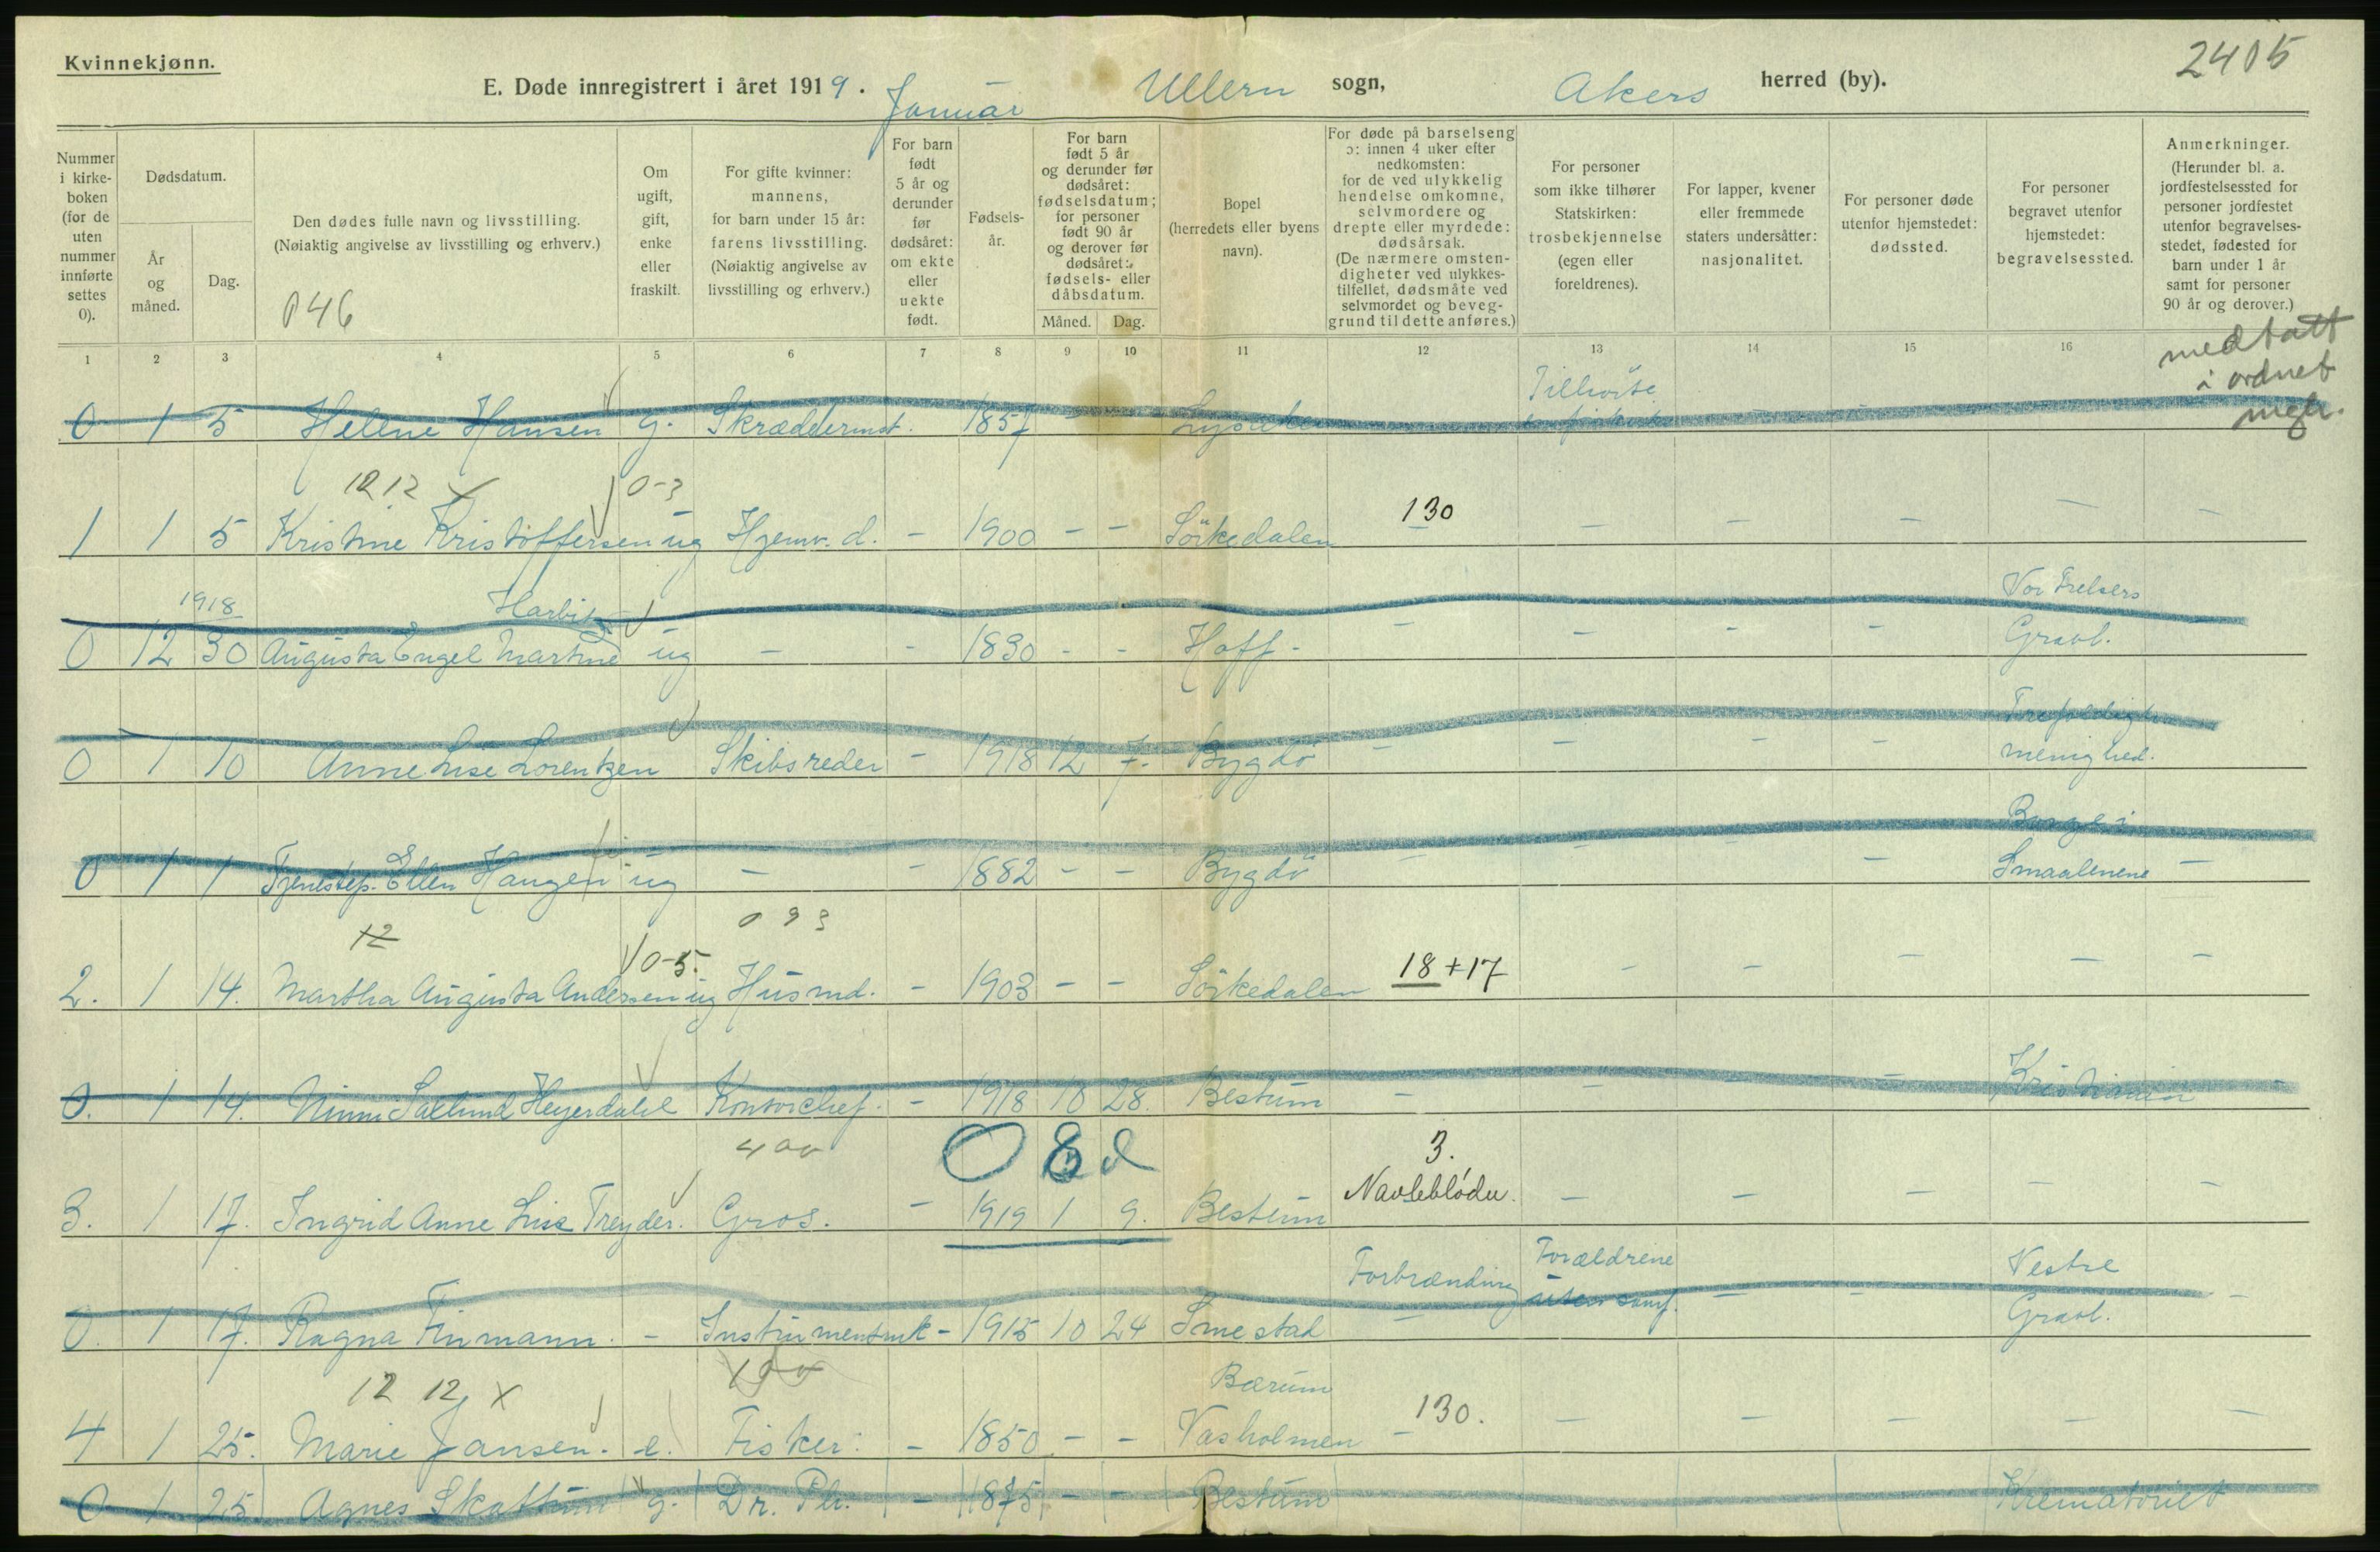 Kvinnekjønn.
2405
E. Døde innregistrert i året 1919. Januar Ullern sogn, Akers herred (by).
Nummer i kirkeboken (for de uten nummer innførte settes 0).
Dødsdatum.
År og måned.
Dag.
Den dødes fulle navn og livsstilling.
(Nøiaktig angivelse av livsstilling og erhverv.)
046
Om ugift, gift, enke eller fraskilt.
For gifte kvinner: mannens, for barn under 15 år: farens livsstilling. (Nøiaktig angivelse av livsstilling og erhverv.)
For barn født 5 år og derunder før dødsåret: om ekte eller uekte født.
Fødselsår.
For barn født 5 år og derunder før dødsåret: fødselsdatum; for personer født 90 år og derover før dødsåret: fødsels- eller dåbsdatum.
Måned. Dag.
Bopel (herredets eller byens navn).
For døde på barselseng ɔ: innen 4 uker efter nedkomsten: for de ved ulykkelig hendelse omkomne, selvmordere og drepte eller myrdede: dødsårsak. (De nærmere omstendigheter ved ulykkestilfellet, dødsmåte ved selvmordet og beveggrund til dette anføres.)
For personer som ikke tilhører Statskirken: trosbekjennelse (egen eller foreldrenes).
For lapper, kvener eller fremmede staters undersåtter: nasjonalitet.
For personer døde utenfor hjemstedet: dødssted.
For personer begravet utenfor hjemstedet: begravelsessted.
Anmerkninger. (Herunder bl. a. jordfestelsessted for personer jordfestet utenfor begravelsesstedet, fødested for barn under 1 år samt for personer 90 år og derover.)
1 2 3 4 5 6 7 8 9 10 11 12 13 14 15 16
medtatt
i ordnet
0 1 5 Helene Hansen g. Skræddermst. 1857 - Lysaker
1212 x 0-3
1 1 5 Kristine Kristoffersen ug Hjemv. d. - 1900 - - Sörkedalen 130 - - - - -
1918 Harbitz Vor Frelsers
0 12 30 Augusta Engel Martine ug - - 1830 - - Hoff - - - - - Gravl.
0 1 10 Anne Lise Lorentzen Skibsreder - 1918 12 7. Bygdö - - - - Trefoldigh. menighed.
0 1 1 Tjenestep. Ellen Haugen ug - - 1882 - - Bygdö - - - - Borge i Smaalenene -
12 0-5. 093
2. 1 14. Martha Augusta Andersen ug Husmd. - 1903 - - Sörkedalen 18+17 - - - - -
0. 1 14. Ninni Heyerdahl Kontorchef. - 1918 10 28. Bestum - - - - Kristiania -
400 0 8 d 3.
3. 1 17. Ingrid Anne Lise Treyder. Gros. - 1919 1 9. Bestum Navleblödn. - - - - -
Forbrænding Forældrene Vestre
0. 1 17. Ragna - Instrumentmk - 1915 10 24 Smestad - uten samf. - - Gravl. -
12 12, x Bærum
4 1 25. Marie Jansen. e. Fisker. - 1850 - - Vasholmen - 130. - - - - -
0 1 25 Agnes Skattum g. Dr. Ph. - 1875 - - Bestum Krematoriet